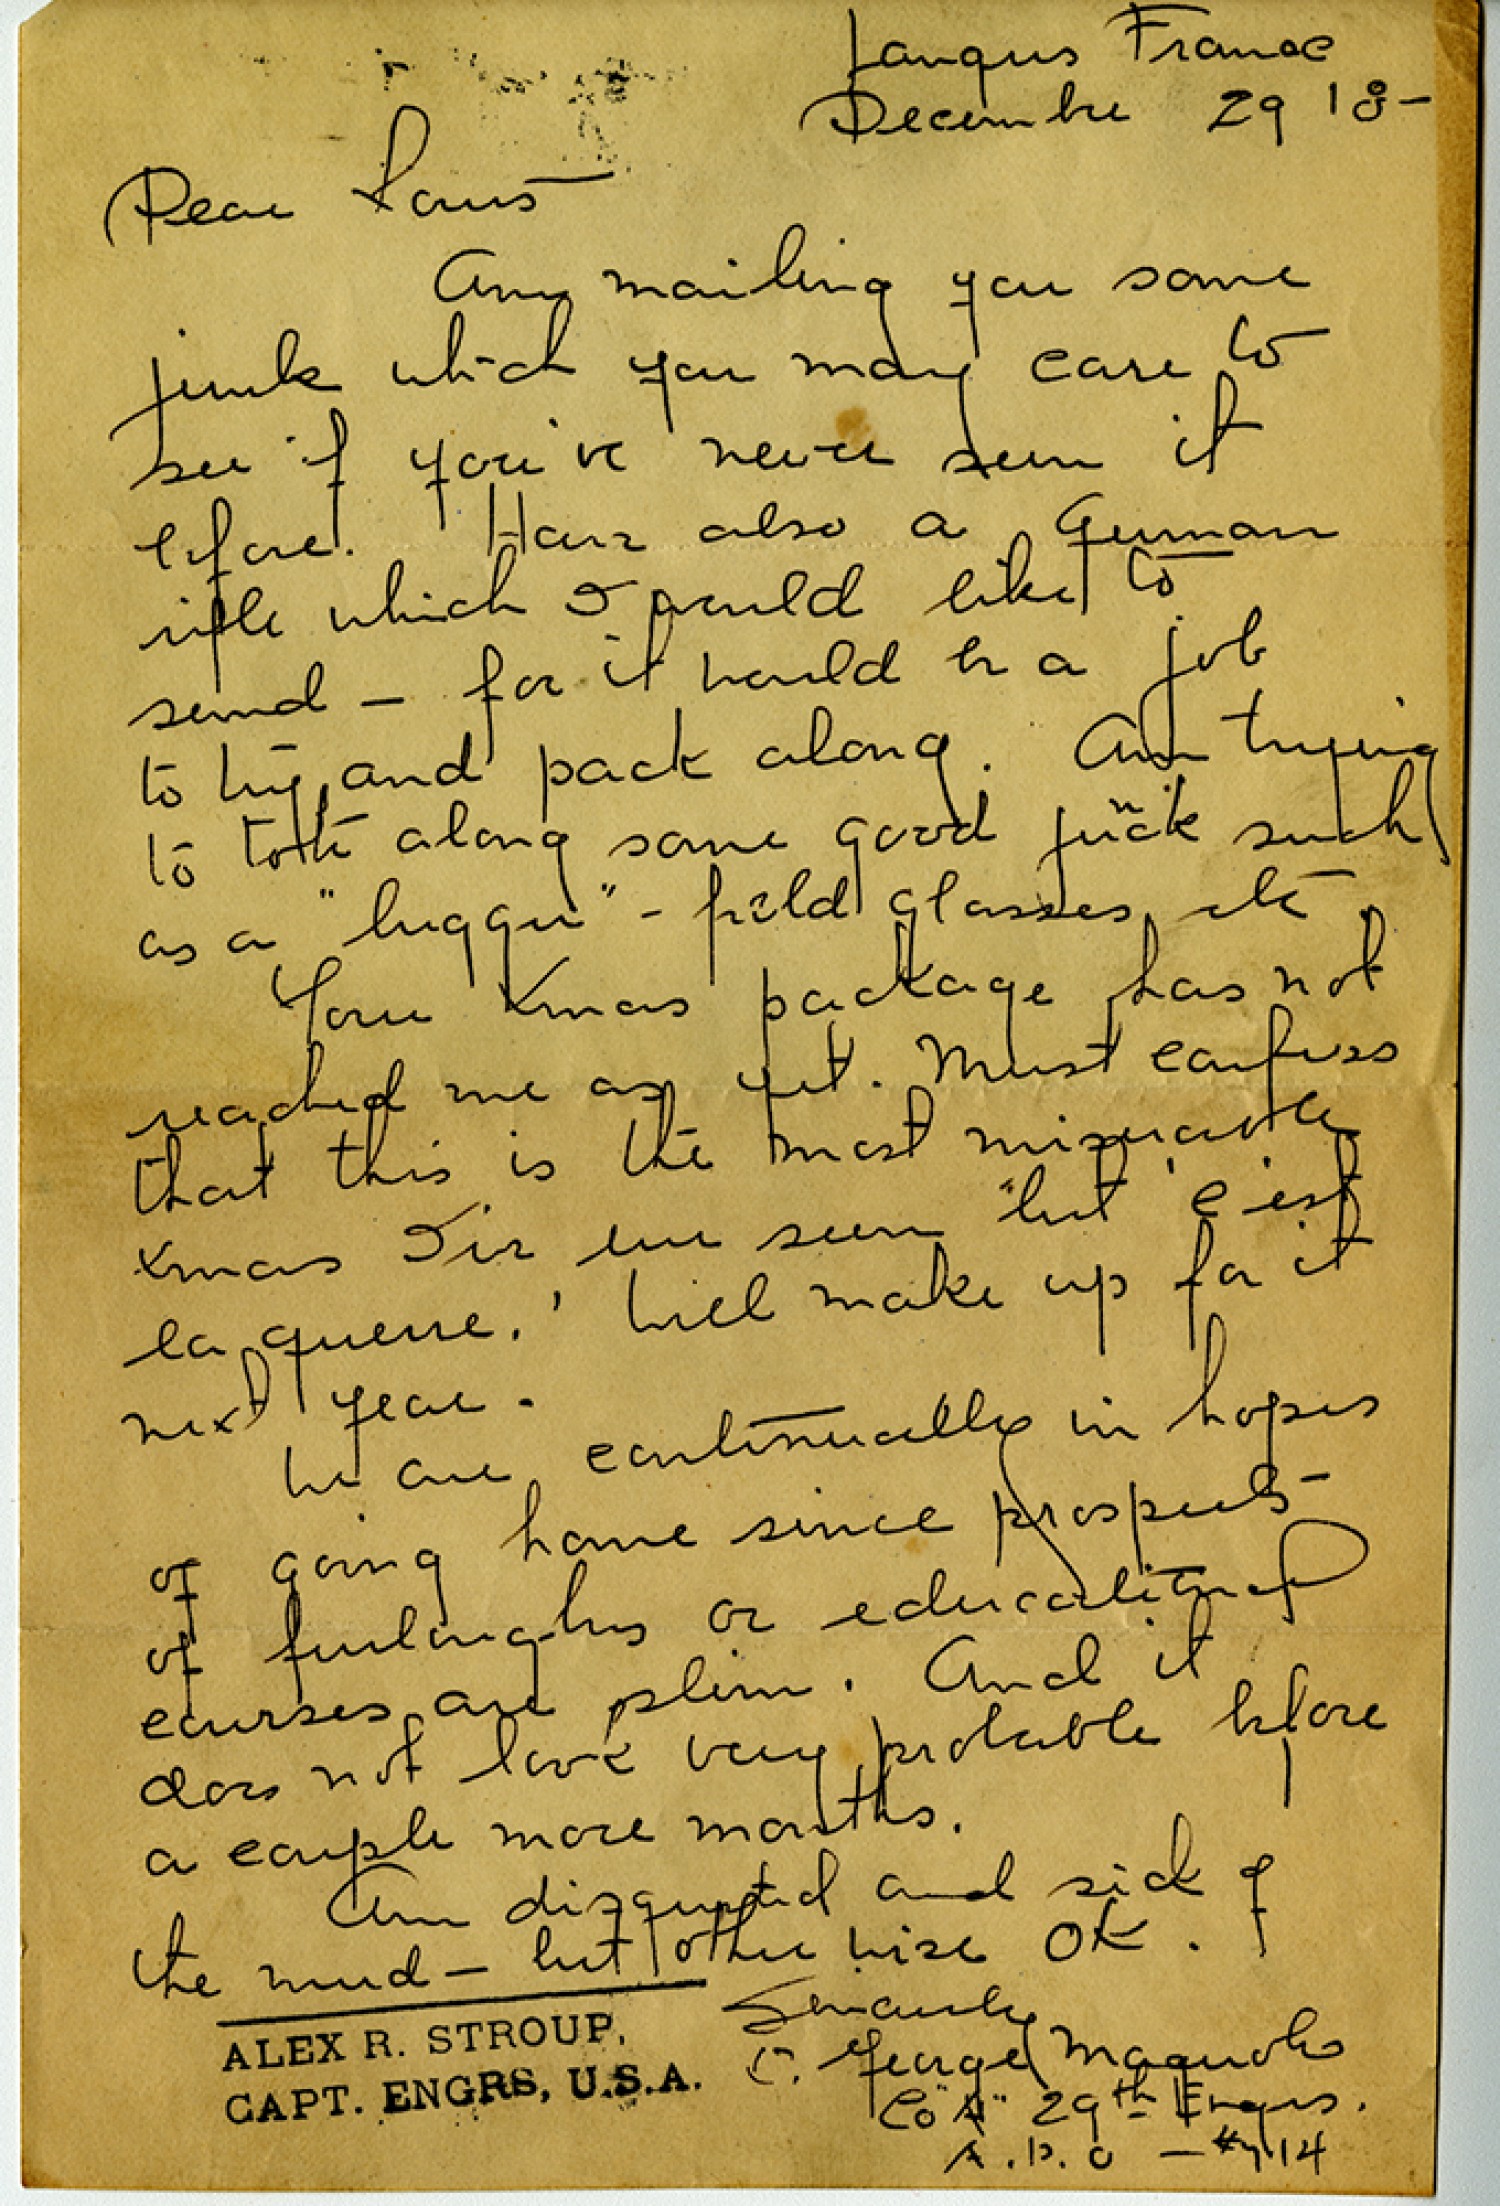 Langres France
December 29 18-
Dear Louis
Am mailing you some
junk which you may care to
see if you've never seen it
before. Have also a German
rifle which I would like to
send - for it would be a job
to try and pack along. Am trying
to tote along some good junk such
as a "lugger" - field glasses, etc.
Your Xmas package has not
reached me as yet. Must confess
that this is the most miserable
Xmas I've ever seen "but 'c'est
la guerre.' Will make up for it
next year.
We are continually in hopes
of going home since prospects
of furloughs or educational
courses are slim. And it
does not look very probable before
a couple more months.
Am disgusted and sick of
the mud - but otherwise OK.
Sincerely
George
Co "A" 29th Engrs.
A.P.O - #714
ALEX R. STROUP,
CAPT. ENGRS, U.S.A.